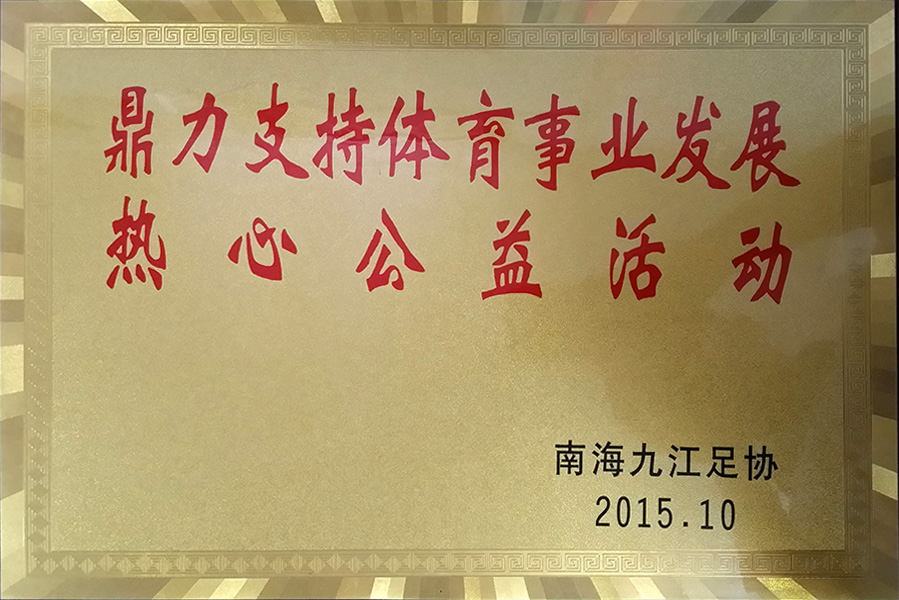 鼎力支持体育事业发展
热心公益活动
南海九江足协
2015.10